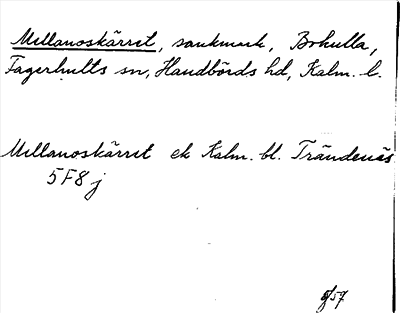 Mellanoskärret, sankmark, Bohulla,
Fagerhults sn, Handbörds hd, Kalm. l.
Mellanoskärret ek Kalm. bl. Trändenäs
5F8j
/57